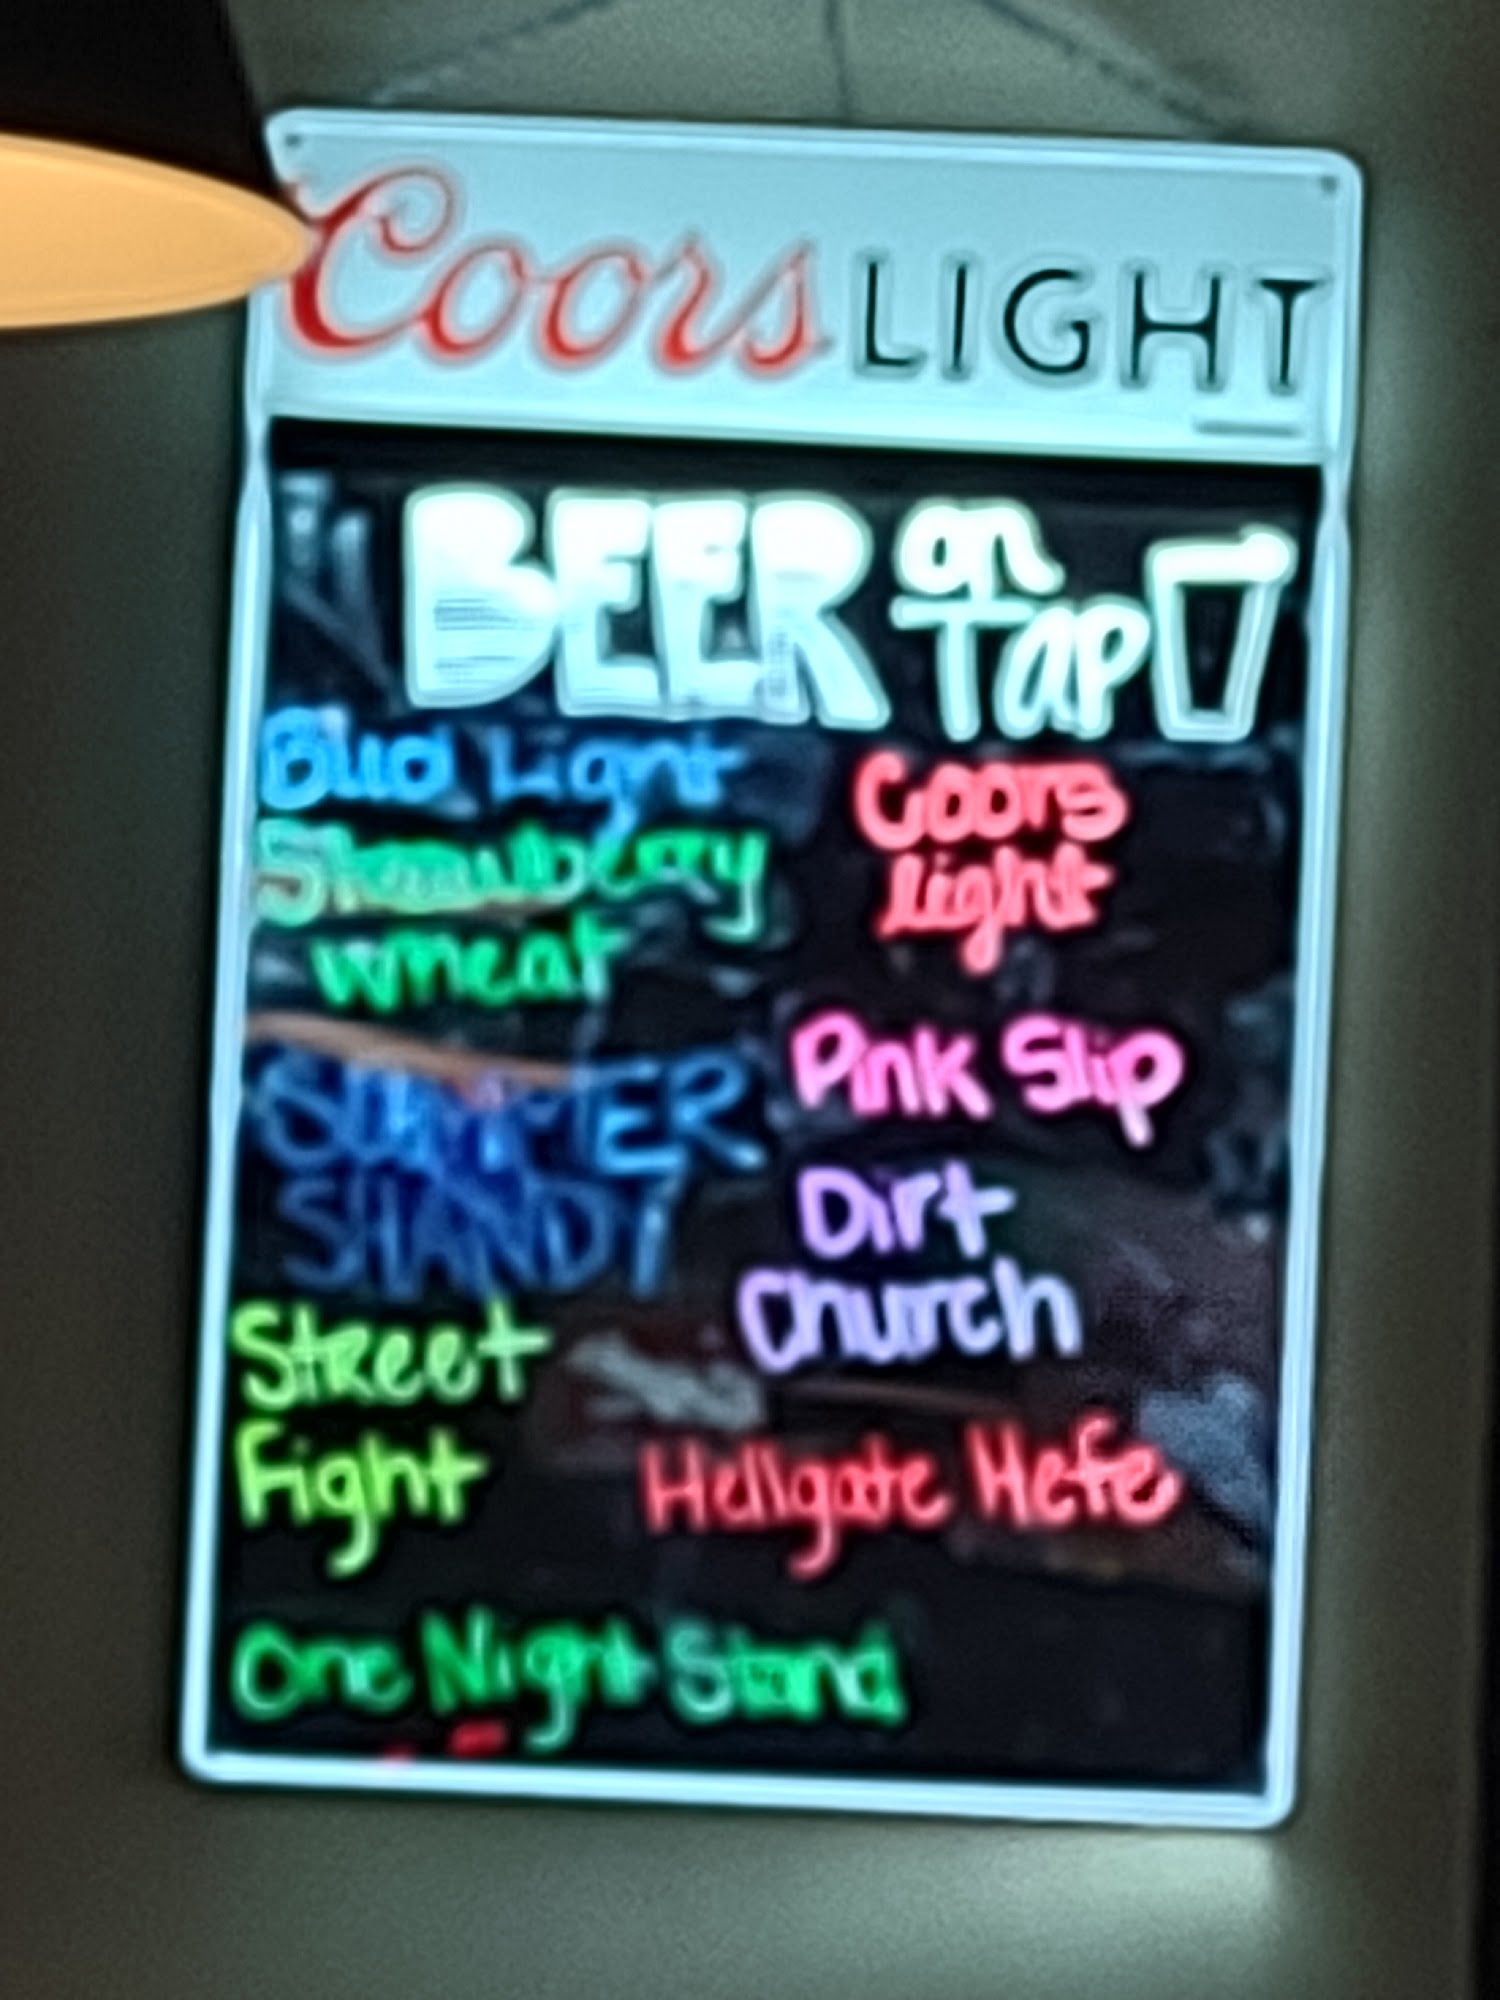 Coors LIGHT
BEER on Tap
Bud Light
Strawberry
wheat
SUMMER
SHANDY
Street
Fight
Coors
Light
Pink Slip
Dirt
Church
Hellgate Hefe
One Night Stand